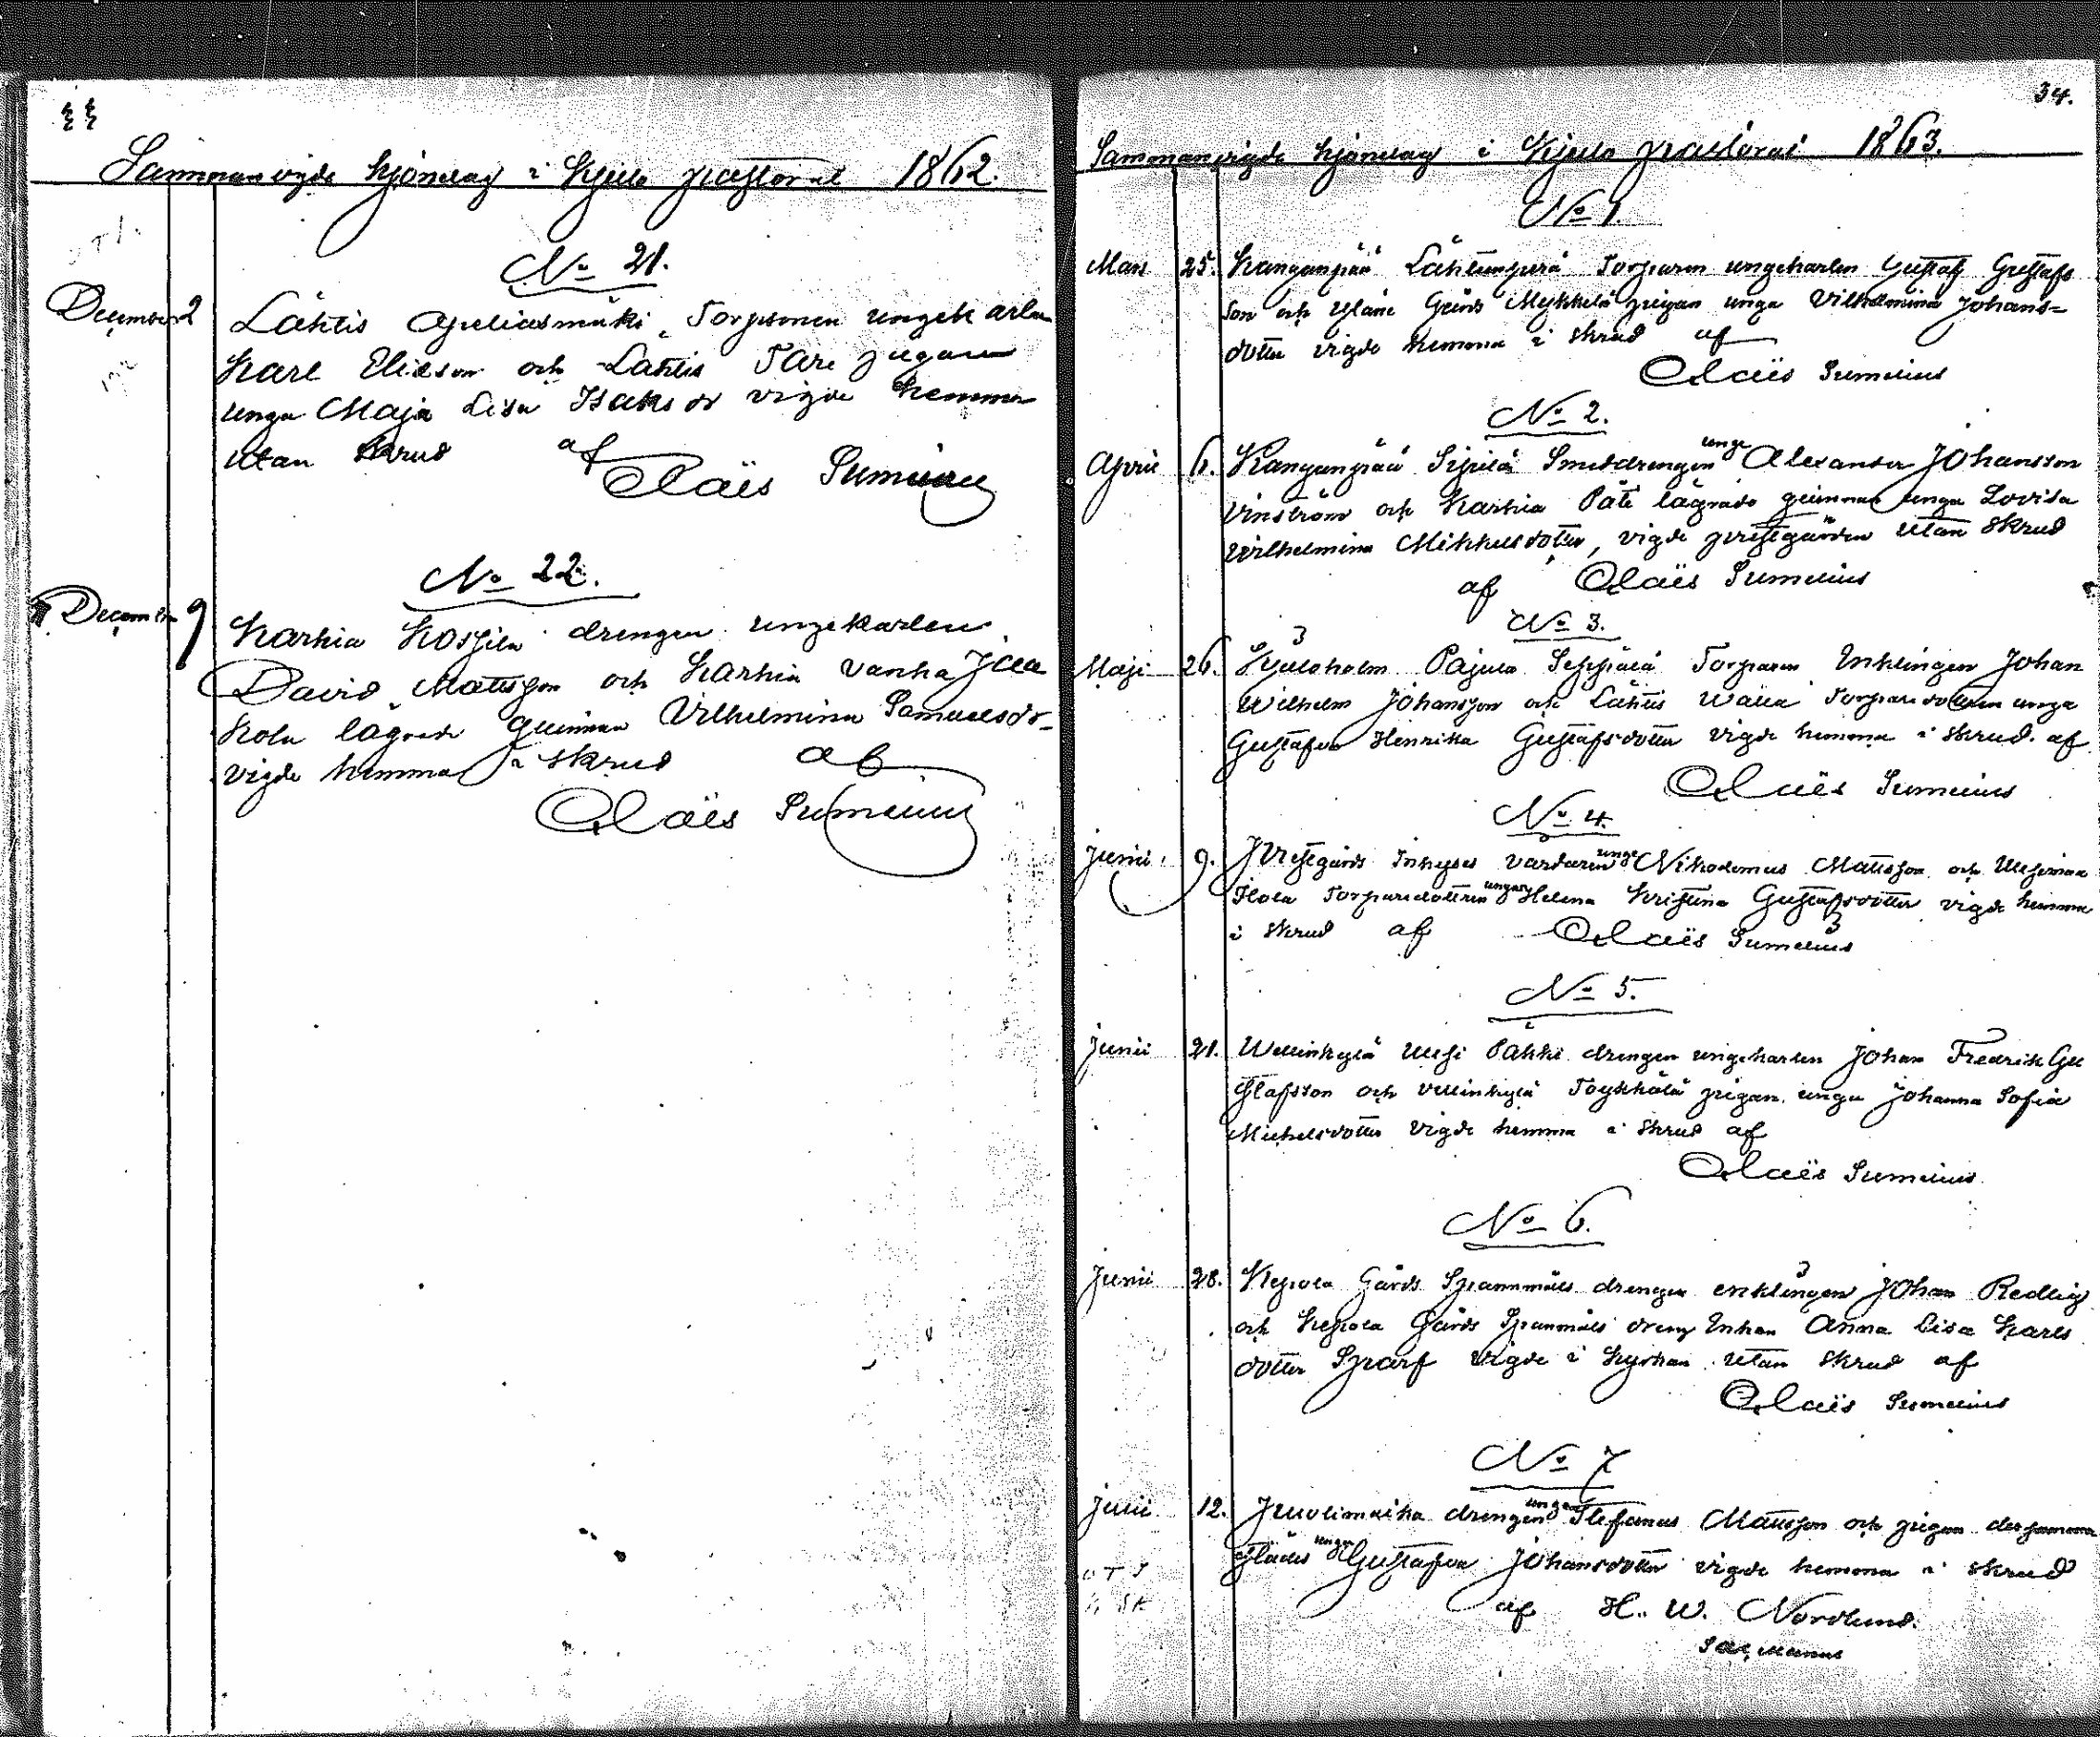 Sammanvigde hjonelag i Kjulo pastorat 1862.
No 21.
December 2 Lähtis Apeliasmäki Torpsonen ungekarlen
Karl Eliasson och Lähtis Tare pigan
unga Maja Lisa Isaks dr vigde hemma
utan skrud af
Claës Sumelius
No 22.
December 9 Karhia Kospila drengen ungekarlen
David Mattsson och Karhia Vanha Jala
Kola lägrade quinnan Vilhelmina Samuelsdr
vigde hemma i skrud af
Claës Sumelius
34.
Sammanvigde hjonelag i Kjulo pastorat 1863.
No 1.
Mars 25. Kanganpää Lähteenperä Torparen ungekarlen Gustaf Gustafs
son och Yläne Gårds Mykkelä pigan unga Vilhelmina Johans=
dotter vigde hemma i skrud af
Claës Sumelius
No 2.
April 6. Kanganpää Sipilä Smedsdrengen unge Alexander Johansson
Vinström och Karhia Päti lägrade quinnan unga Lovisa
Wilhelmina Mikkelsdotter, vigde prestgården utan skrud
af Claës Sumelius
No 3.
Maji 26. Kjuloholm Pajula Seppälä Torparen Enklingen Johan
Wilhelm Johansson och Lähtis Walla Torparedottren unga
Gustafva Henrika Gustafsdotter vigde hemma i skrud af
Claës Sumelius
No 4.
Junii 9. Prestgårds Inhyses vardaren unge Nikodemus Mattsson och
Ilola Torparedottren unga Helena Kristina Gustafsdotter vigde hemma
i skrud af Claës Sumelius
No 5.
Junii 21. Wellinkylä Uusi Pahki drengen ungekarlen Johan Fredrik Gu
stafsson och Vellinkylä Töykkälä pigan unga Johanna Sofia
Michelsdotter vigde hemma i skrud af
Claës Sumelius
No 6.
Junii 28. Kepola Gårds Spannmåls drengen enklingen Johan Redlig
och Kepola Gårds Spanmåls dreng Enkan Anna Lisa Karls
dotter Sparf vigde i kyrkan utan skrud af
Claës Sumelius
No 7
Julii 12. Juvolimaika drengen unge Stefanus Mattsson och pigan dersamma
städes unga Gustafva Johansdotter vigde hemma i skrud
af H. W. Nordlund.